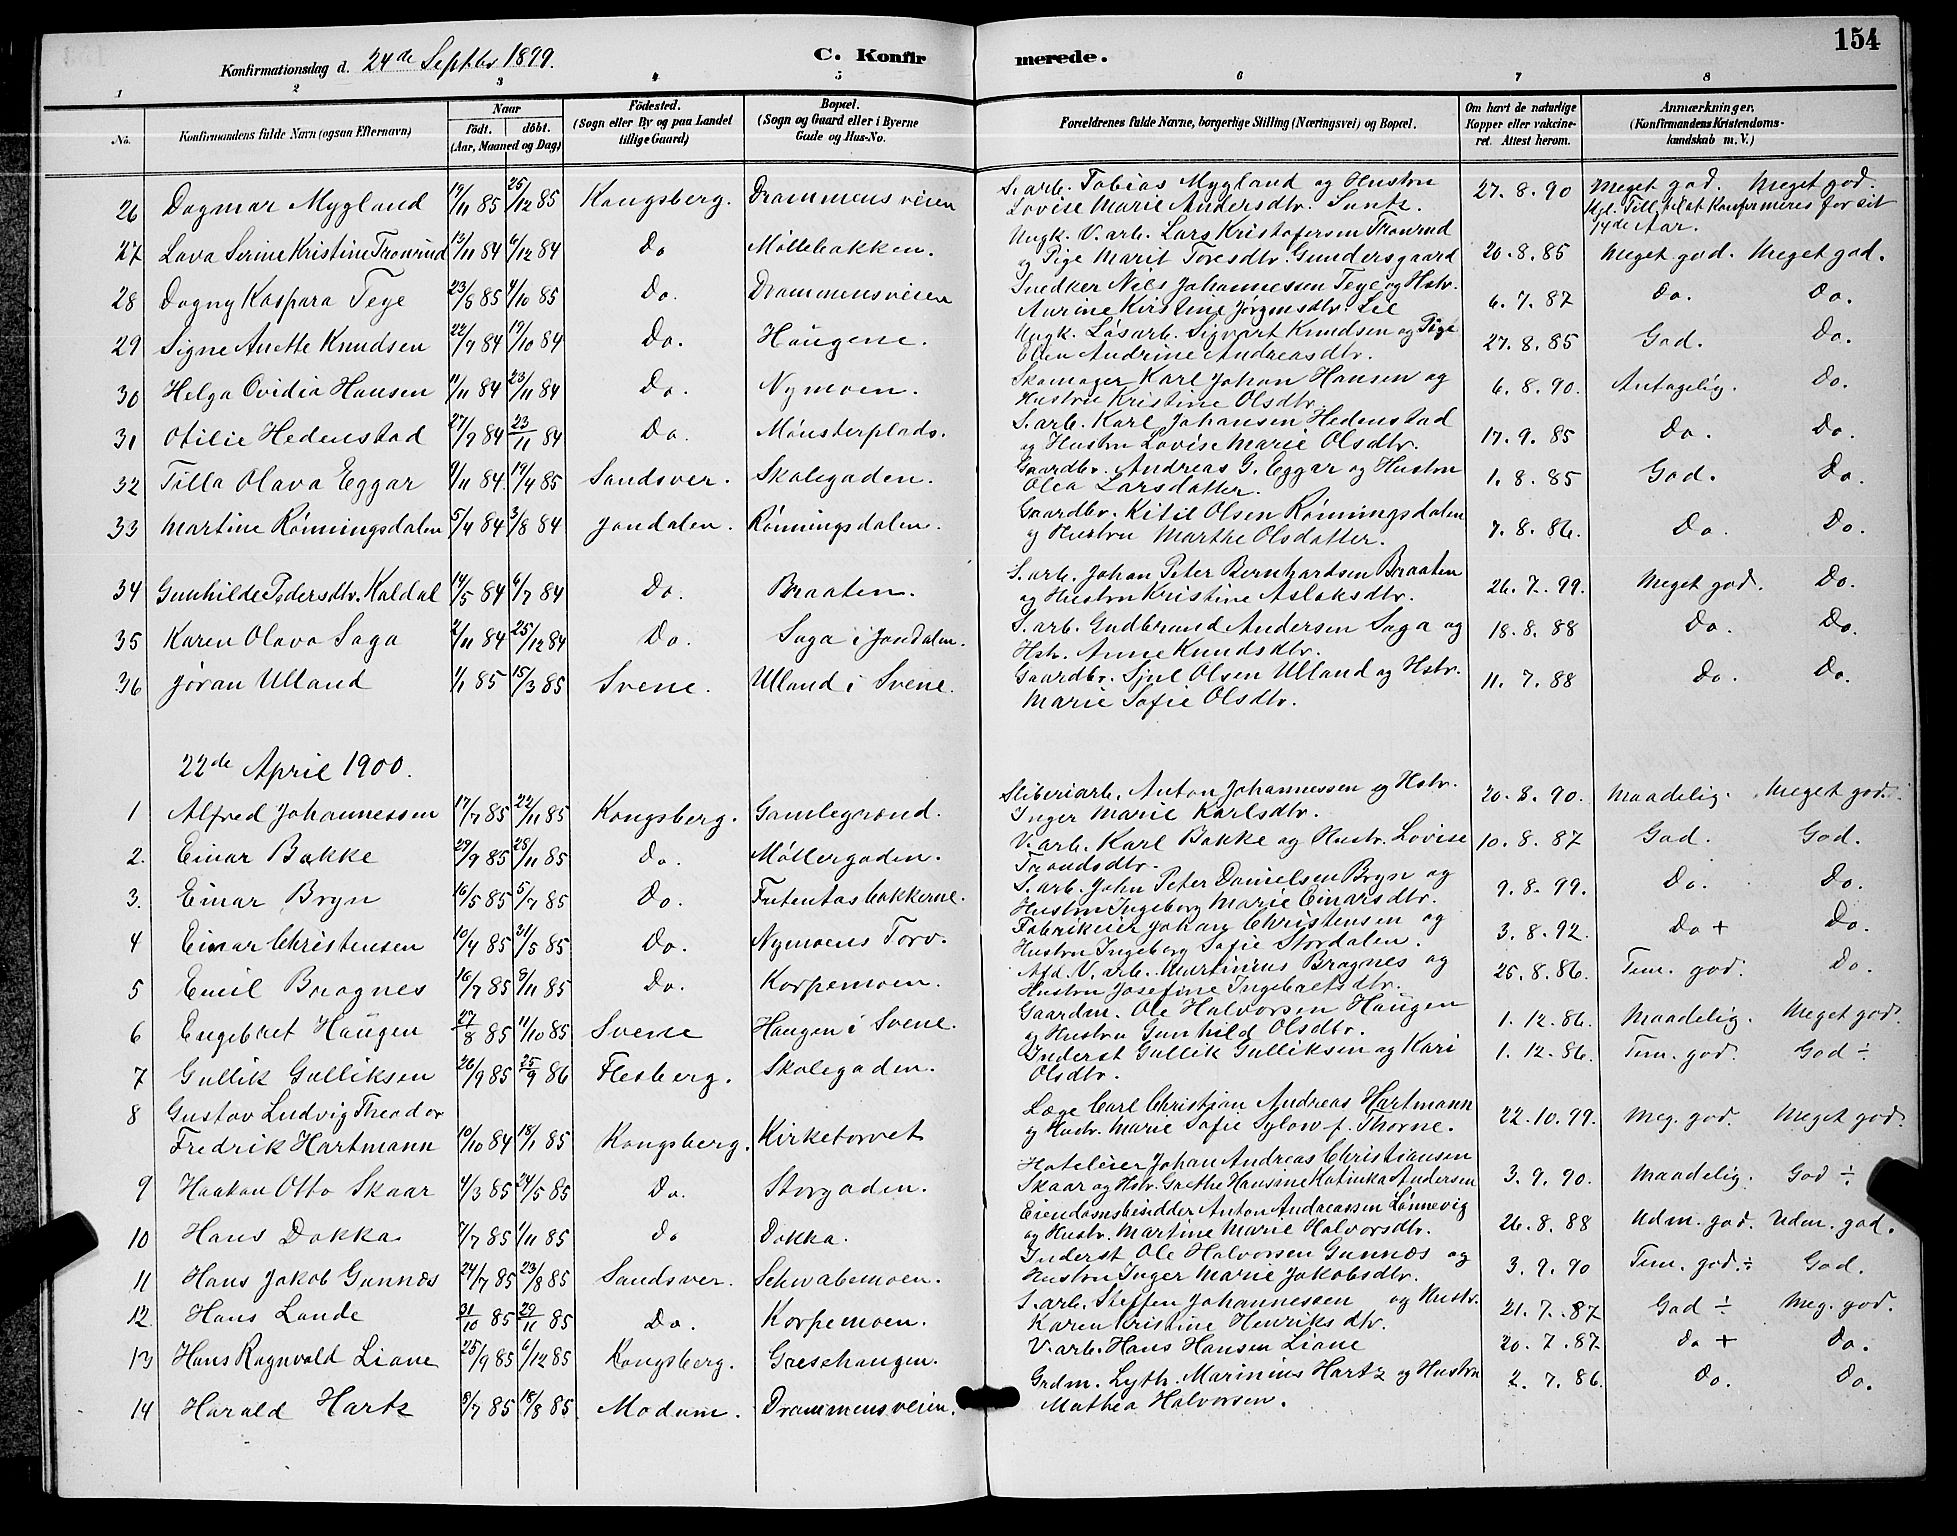 154
Konfirmationsdag d. 24de Septbr 1899. C. Konfirmerede.
1 2 3 4 5 6 7 8
No. Konfirmandens fulde Navn (ogsaa Efternavn) Naar født. døbt. (Aar, Maaned og Dag) Fødested. (Sogn eller By og paa Landet tillige Gaard) Bopæl. (Sogn og Gaard eller i Byerne Gade og Hus-No. Forældrenes fulde Navne, borgerlige Stilling (Næringsvei) og Bopæl. Om havt de naturlige Kopper eller vakcineret. Attest herom. Anmærkninger. (Konfirmandens Kristendomskundskab m. V.)
26 Dagmar Mygland 19/11 85 25/12 85 Kongsberg. Drammensveien S. arb. Tobias Mygland og Hustru Lovise Marie Andersdtr. 27. 8. 90 Meget god. Meget god. Kgl. Till. til at Konfirmeres før sit 14de Aar.
27 Lava Serine Kristine Tronrud 13/11 84 6/12 84 Do Møllebakken. Ungk. V. arb. Lars Kristofersen Tronrud og Pige Marit Toresdtr. Gundersgaard 20. 8. 85 Meget god. Meget god.
28 Dagny Kaspara Tege 23/8 85 4/10 85 Do. Drammensveien Snedker Nils Johannessen Tege og Hstr. Aurine Kristine Jørgensdtr. Lie 6. 7. 87 Do. Do.
29 Signe Anette Knudsen 22/9 84 19/10 84 Do. Haugene. Ungk. Løsarb. Sigvart Knudsen og Pige Ellen Andrine Andreasdtr. 27. 8. 85 God. Do.
30 Helga Ovidia Hansen 11/11 84 23/11 84 Do. Nymoen. Skomager Karl Johan Hansen og Hustru Kristine Olsdtr. 6. 8. 90. Antagelig. Do.
31 Otilie Hedenstad 27/9 84 23/11 84 Do. Mønsterplads. S. arb. Karl Johansen Hedenstad og Hustru Lovise Marie Olsdtr. 17. 9. 85 Do. Do.
32 Tilla Olava Eggar 9/11 84 19/4 85 Sandsver. Skolegaden. Gaardbr. Andreas G. Eggar og Hustru Olea Larsdatter. 1. 8. 85 God. Do.
33 Martine Rønningsdalen 5/4 84 3/8 84 Jondalen. Rønningsdalen. Gaardbr. Kitil Olsen Rønningsdalen og Hustru Marthe Olsdatter. 7. 8. 86. Do. Do.
34 Gunhilde Pedersdtr. Kaldal 14/5 84 6/7 84 Do. Braaten. S. arb. Johan Peter Bernhardsen Braaten og Hustru Kristine Aslaksdtr. 26. 7. 99. Meget god. Do.
35 Karen Olava Saga 2/11 84 25/12 84 Do. Saga i Jondalen. S. arb. Gudbrand Andersen Saga og Hstr. Anne Knudsdtr. 18. 8. 88 Do. Do.
36 Jøran Ulland 1/1 85 15/3 85 Svene. Ulland i Svene. Gaardbr. Sjul Olsen Ulland og Hstr. Marie Sofie Olsdtr. 11. 7. 88 Do. Do.
22de April 1900.
1 Alfred Johannessen 17/7 85 22/11 85 Kongsberg. Gamlegrønd. Sliberiarb. Anton Johannessen og Hstr. Inger Marie Karlsdtr. 20. 8. 90. Maadelig. Meget god.
2. Einar Bakke 29/9 85 28/11 85 Do. Møllergaden. V. arb. Karl Bakke og Hustr. Lovise Trondsdtr. 10. 8. 87 God. God.
3. Einar Bryn 16/5 85 5/7 85 Do. Futentasbakkerne. S. arb. John Peter Danielsen Bryn og Hustru Ingeborg Marie Einarsdtr. 9. 8. 99. Do. Do.
4 Einar Christensen 10/4 85 31/5 85 Do. Nymoens Torv. Fabrikeier Johan Christensen og Hustru Ingeborg Sofie Stordalen. 3. 8. 92. Do + Do.
5 Emil Bragnes 16/7 85 8/11 85 Do. Korpemoen. Afd. V. arb. Martinius Bragnes og Hustru Josefine Ingebretsdtr. 25. 8. 86. Tem. god. Do.
6 Engebret Haugen 27/8 85 11/10 85 Svene Haugen i Svene. Gaardm. Ole Halvorsen Haugen og Hustru Gunhild Olsdtr. 1. 12. 86. Maadelig. Meget god.
7 Gullik Gulliksen 26/9 85 25/9 86 Flesberg. Skolegaden. Inderst Gullik Gulliksen og Kari Olsdtr. 1. 12. 86. Tem. god. God ÷
8 Gustav Ludvig Theodor Fredrik Hartmann 10/10 84 18/1 85 Kongsberg. Kirketorvet Læge Carl Christian Andreas Hartmann og Hustr. Marie Sofie Sylow f. Thorne. 22. 10. 99. Meg. god. Meget god.
9 Haakon Otto Skaar 4/3 85 24/5 85 Do. Storgaden. Hoteleier Johan Andreas Christiansen Skaar og Hstr. Grethe Hansine Katinka Andersen 3. 9. 90. Maadelig. God ÷
10 Hans Dokka 7/7 85 1/11 85 Do Dokka. Eiendomsbesidder Anton Andreassen Lønnevig og Hustr. Martine Marie Halvorsdtr. 26. 8. 88 Udm. god. Udm. god.
11 Hans Jakob Gunnæs 24/7 85 23/8 85 Sandsver. Schwabemoen. Inderst Ole Halvorsen Gunnæs og Hustru Inger Marie Jakobsdtr. 3. 9. 90 Tem. god. ÷ God.
12 Hans Lande 31/10 85 29/11 85 Do. Korpemoen. S. arb. Steffen Johannessen og Hustr. Karen Kristine Henriksdtr. 21. 7. 87 God ÷ Meg. god.
13 Hans Ragnvald Liane 25/9 85 6/12 85 Kongsberg. Gaasehaugen. V. arb. Hans Hansen Liane 20. 7. 87 Do + Do.
14 Harald Hartz 8/7 85 18/8 85 Modum. Drammensveien. Grdm. Lyth. Marinius Hartz og Hustru Mathea Halvorsen. 2. 7. 86. Do. Do.